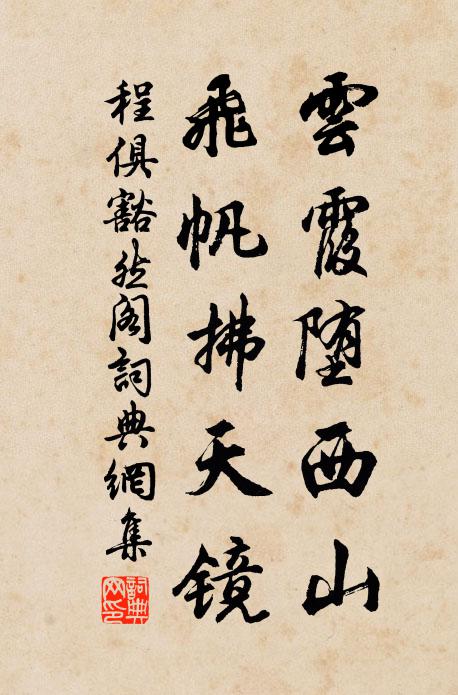 雲霞堕西山
飛帆拂天镜
程俱豁然阁詞典網集
詞典
网印